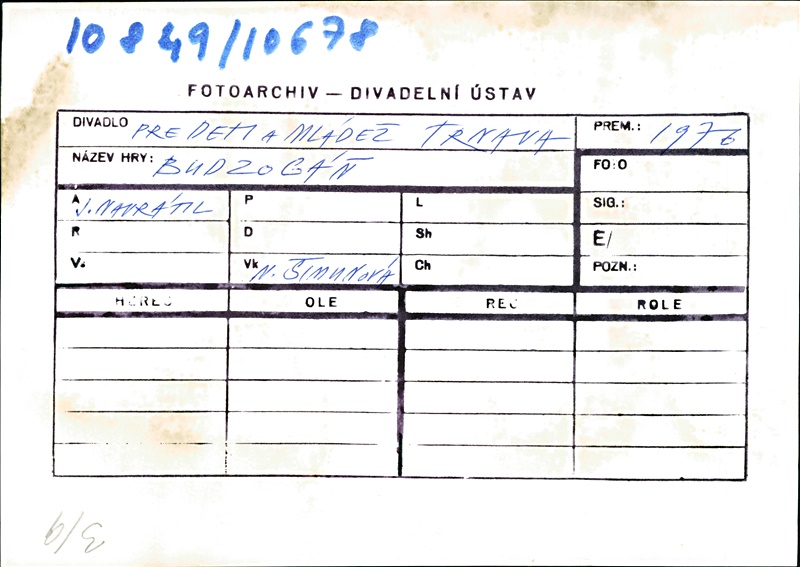 10849/10678
FOTOARCHIV — DIVADELNÍ ÚSTAV
DIVADLO PRE DETI A MLÁDEŽ TRNAVA
PREM.: 1976
NÁZEV HRY: BUDZOGÁŇ
FO:O
A J. NAVRÁTIL
P
L
SIG.:
R
D
Sh
E/
V.
Vk N. ŠIMUNOVÁ
Ch
POZN.:
HEREC
OLE
REC
ROLE